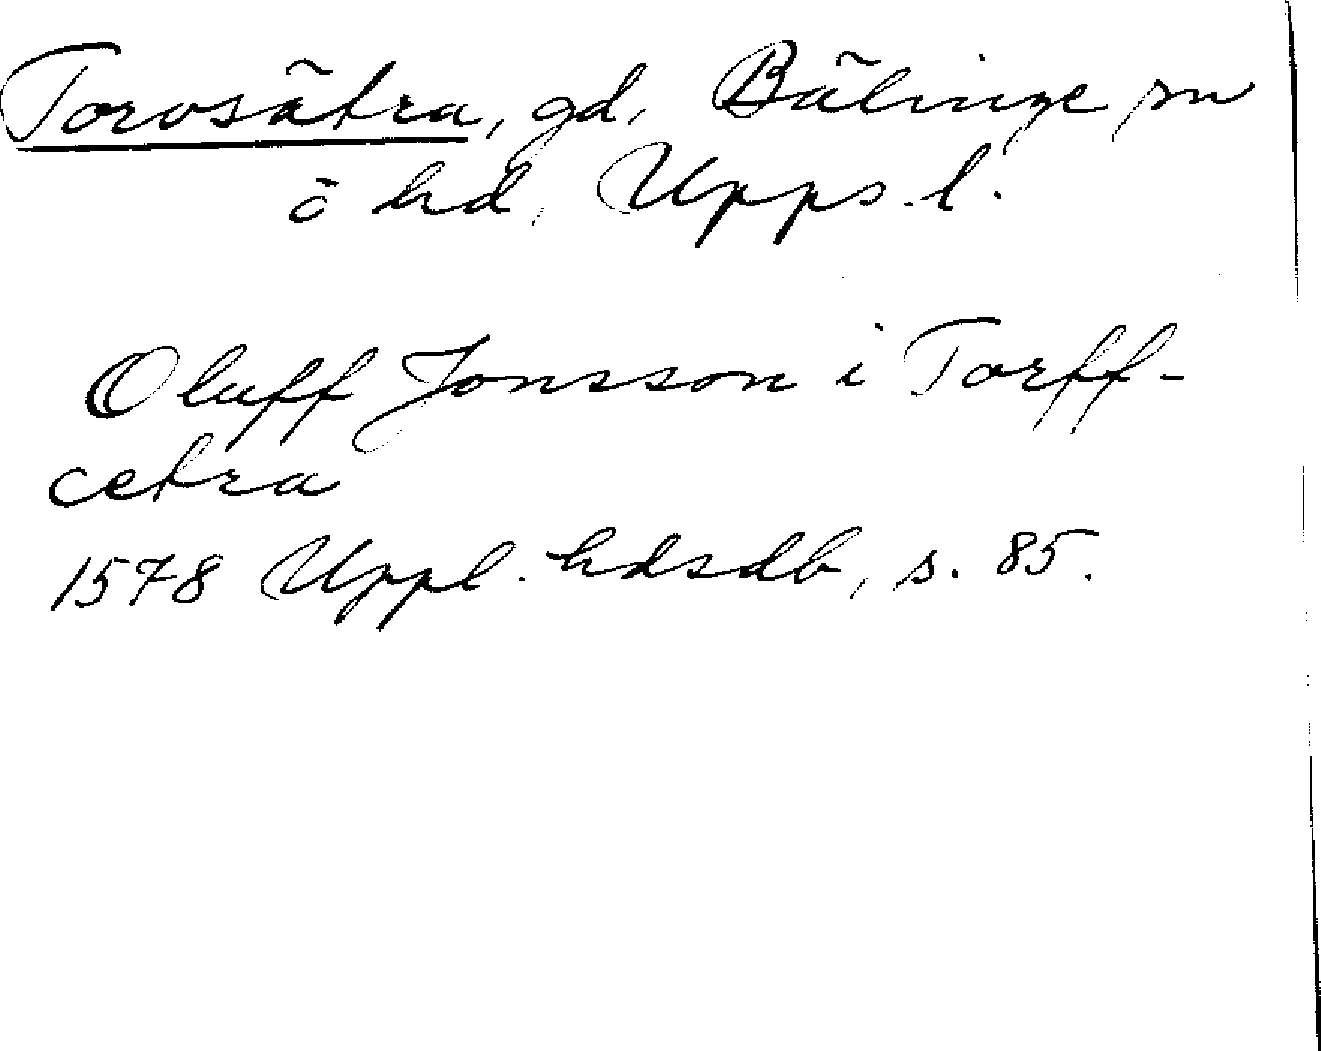 Torvsätra, gd, Bälinge sn
o hd, Upps. l.
Oluff Jonsson i Torff-
cetra
1578 Uppl. hdsdb, s. 85.